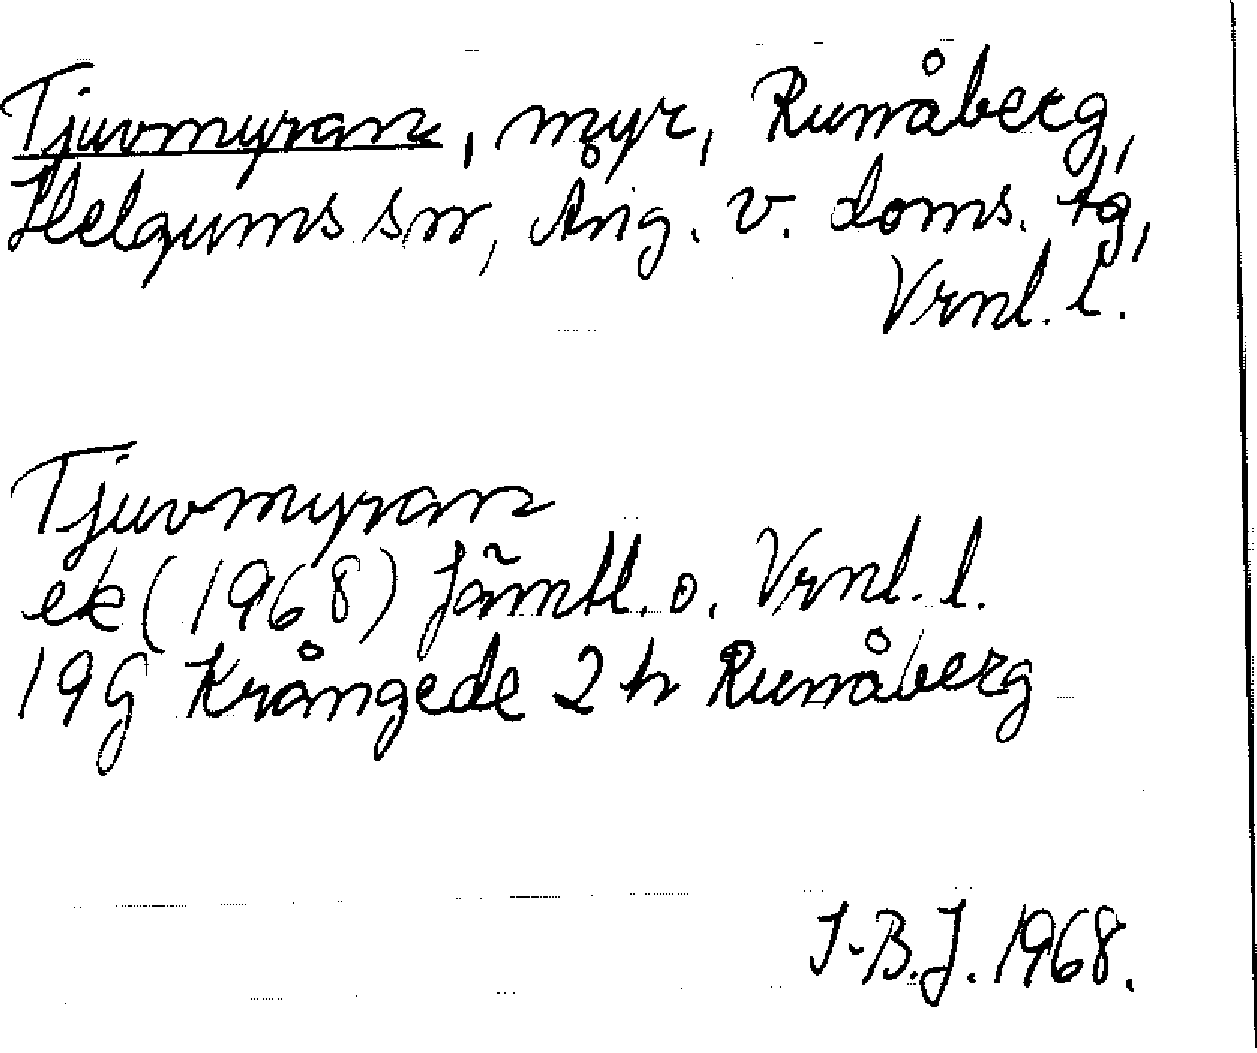 Tjuvmyran, myr, Runåberg,
Helgums sn, Ång. v. doms. tg,
Vrnl. l.
Tjuvmyran
ek (1968) Jämtl. o. Vrnl. l.
19G Krångede 2 h Runåberg
I-B.J. 1968.